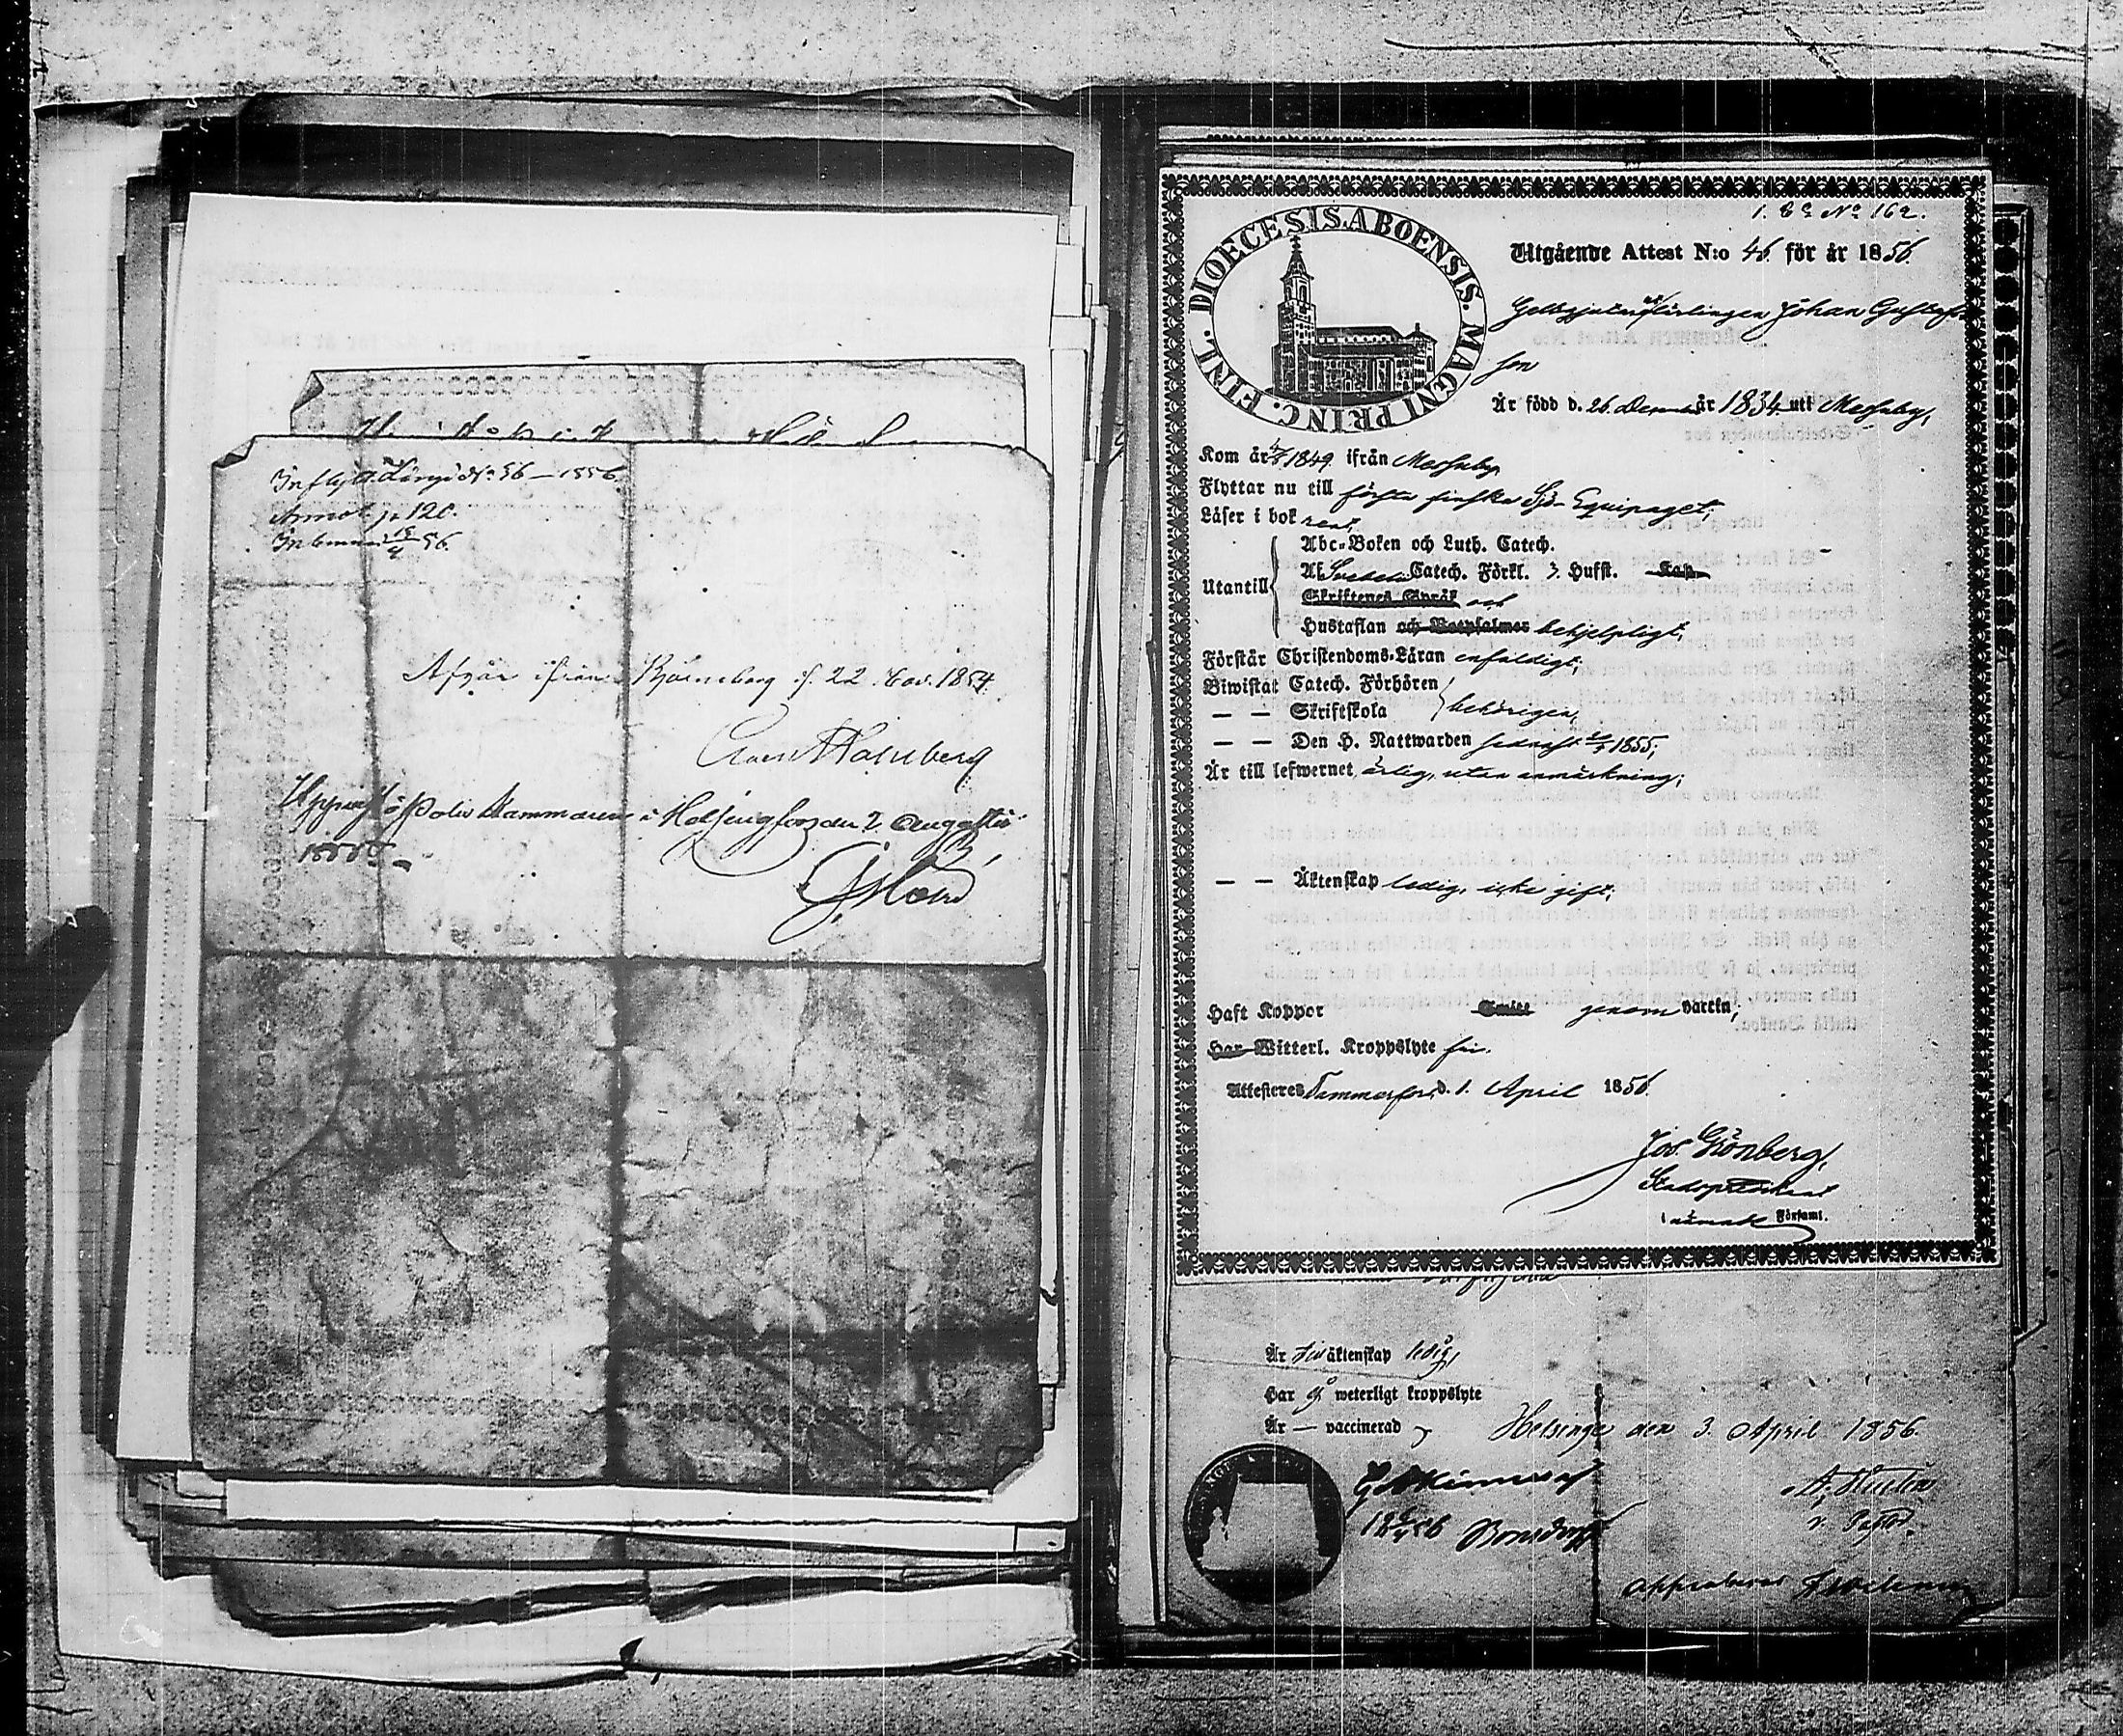 Inflytt. Längd N:o 56 – 1856.
Annot. p. 120.
Afgår ifrån Björneborg d. 22 Nov. 1854.
Uppvist å Polis Kammaren i Helsingfors den 2 Augusti
1855
DIOECESIS ABOENSIS. MAGNI PRINC. FINL.
N:o 162.
Utgående Attest N:o 46 för år 1856.
Johan Gustafs-
son
Är född d. 26. Decemb. år 1834 uti Messuby,
Kom år 1849 ifrån Messuby
Flyttar nu till första finska Sjö-Equipaget;
Läser i bok rent,
Abc-Boken och Luth. Catech.
Utantill
Af Svebelii Catech. Förkl. 3. Husst. Kap.
Skriftenes Språk och
Hustaflan och Botpsalmer behjelpligt,
Förstår Christendoms-Läran enfaldigt;
Biwistat Catech. Förhören
— — Skriftskola behörigen,
— — Den H. Nattwarden sednast 1855;
Är till lefwernet ärlig, utan anmärkning;
— — Äktenskap ledig, icke gift;
Haft Koppor Smitt genom vaccin;
Har Witterl. Kroppslyte fri.
Attesteres Tammerfors d. 1. April 1856.
Jos. Grönberg,
Församl.
Är till äktenskap ledig,
Har ej weterligt kroppslyte
Är — vaccinerad
Helsinge den 3. April 1856.
Bonsdorff
v. Pastor.